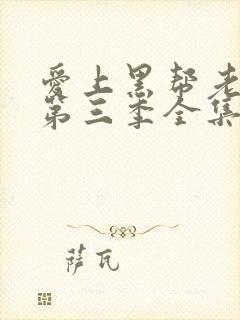 爱上黑帮老
第三季全集
萨瓦